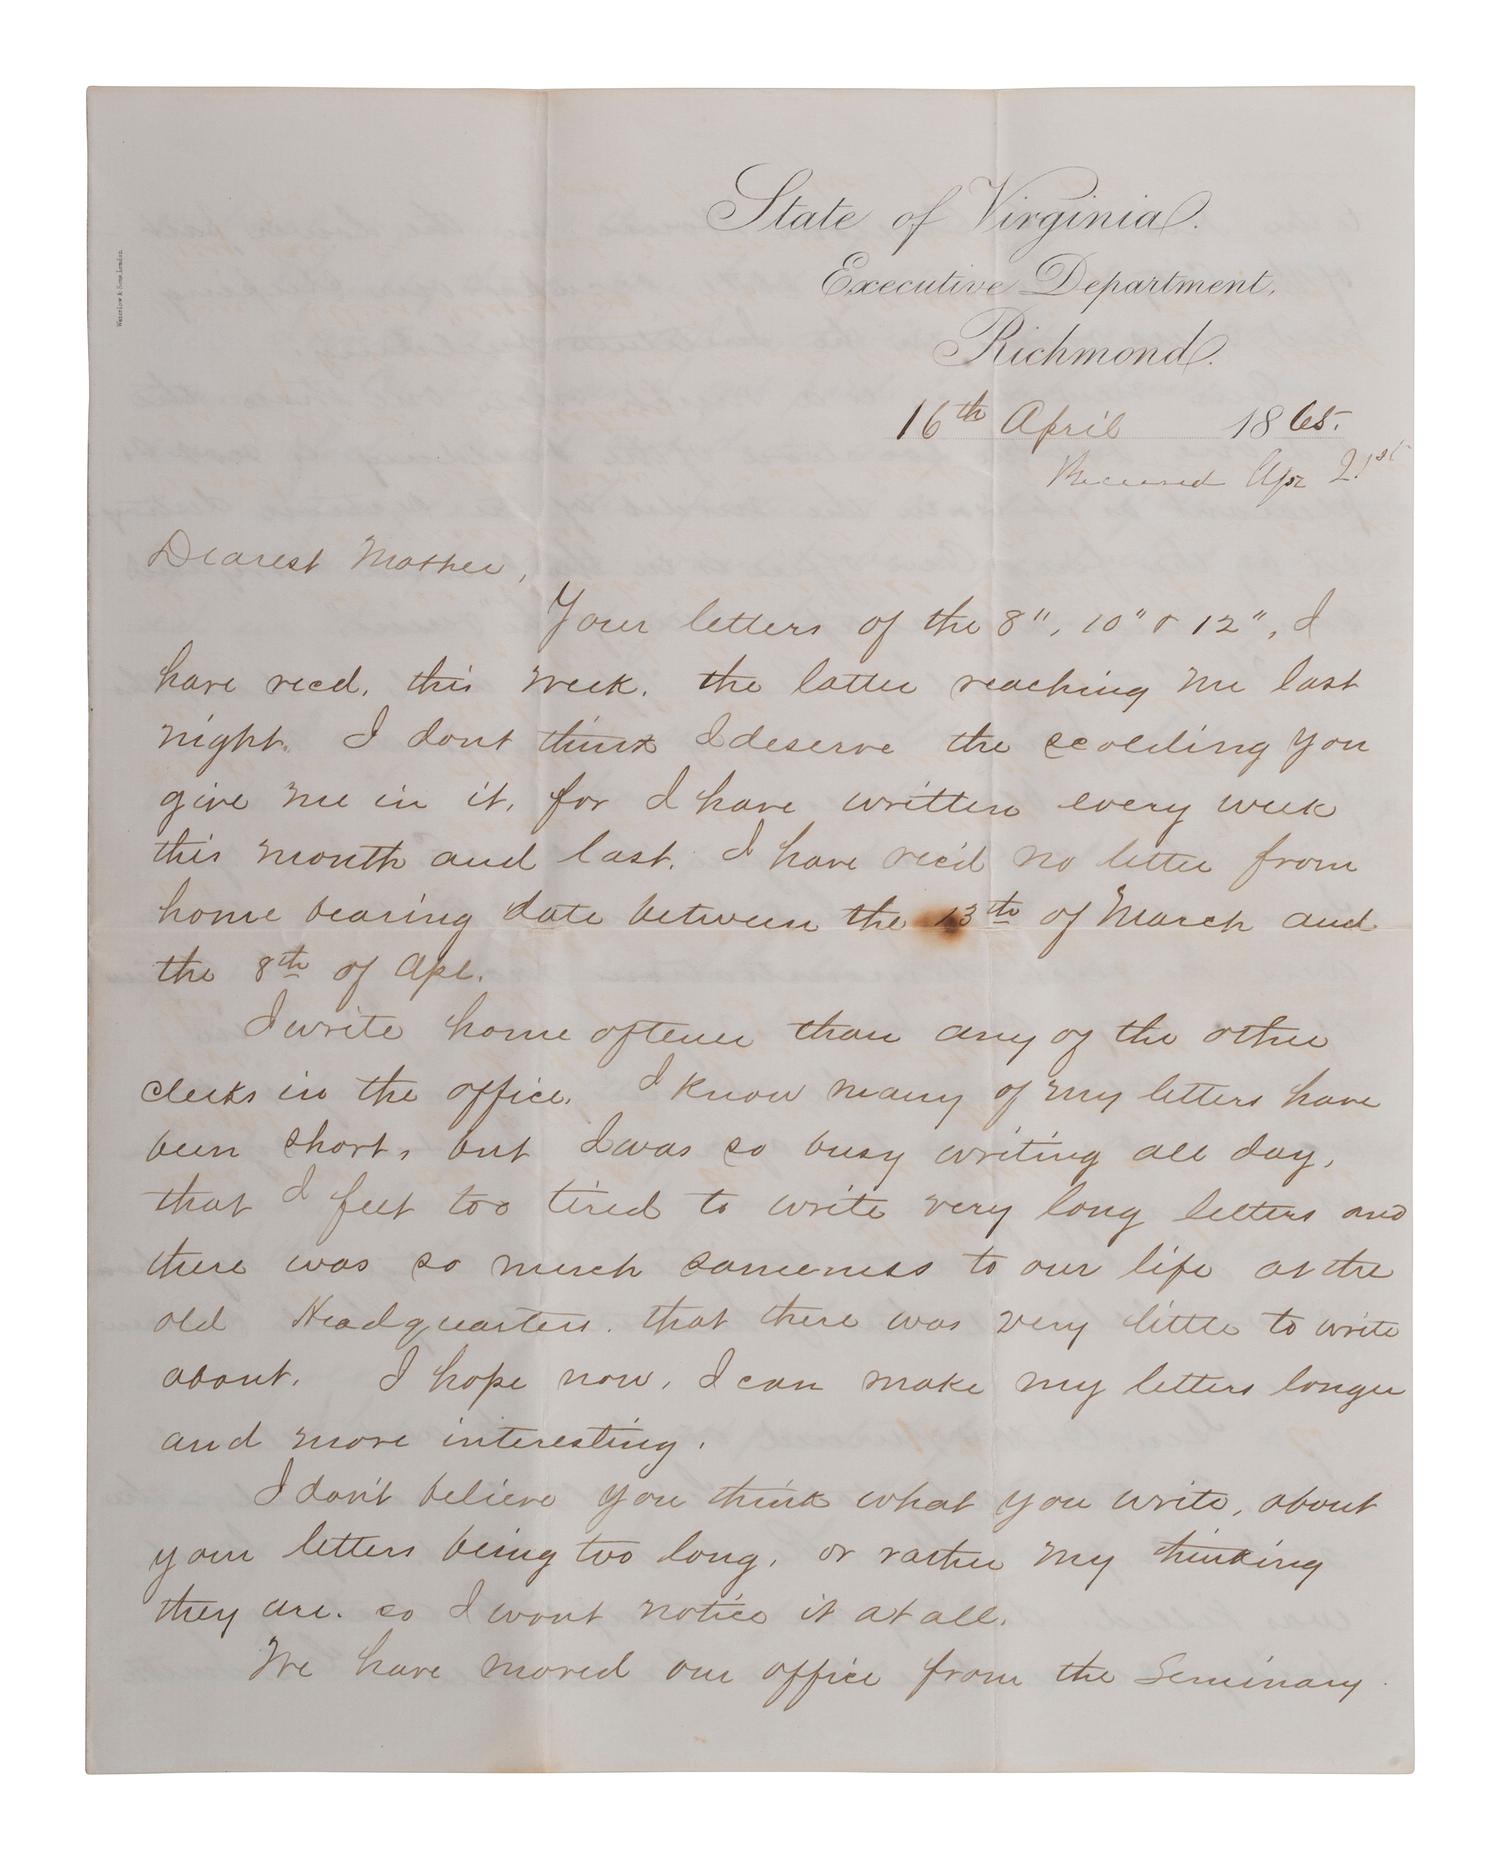 State of Virginia.
Executive Department,
Richmond.
Waterlow & Sons, London.
16th April 1865.
Received Apr 21st
Dearest Mother,
Your letters of the 8", 10" & 12", I
have recd. this week. the latter reaching me last
night. I dont think I deserve the scolding you
give me in it, for I have written every week
this month and last. I have rec'd no letter from
home bearing date between the 13th of March and
the 8th of Apl.
I write home oftener than any of the other
clerks in the office. I know many of my letters have
been short, but I was so busy writing all day,
that I felt too tired to write very long letters and
there was so much sameness to our life at the
old Headquarters. that there was very little to write
about. I hope now, I can make my letters longer
and more interesting.
I don't believe you think what you write, about
your letters being too long, or rather my thinking
they are. so I wont notice it at all.
We have moved our office from the Seminary